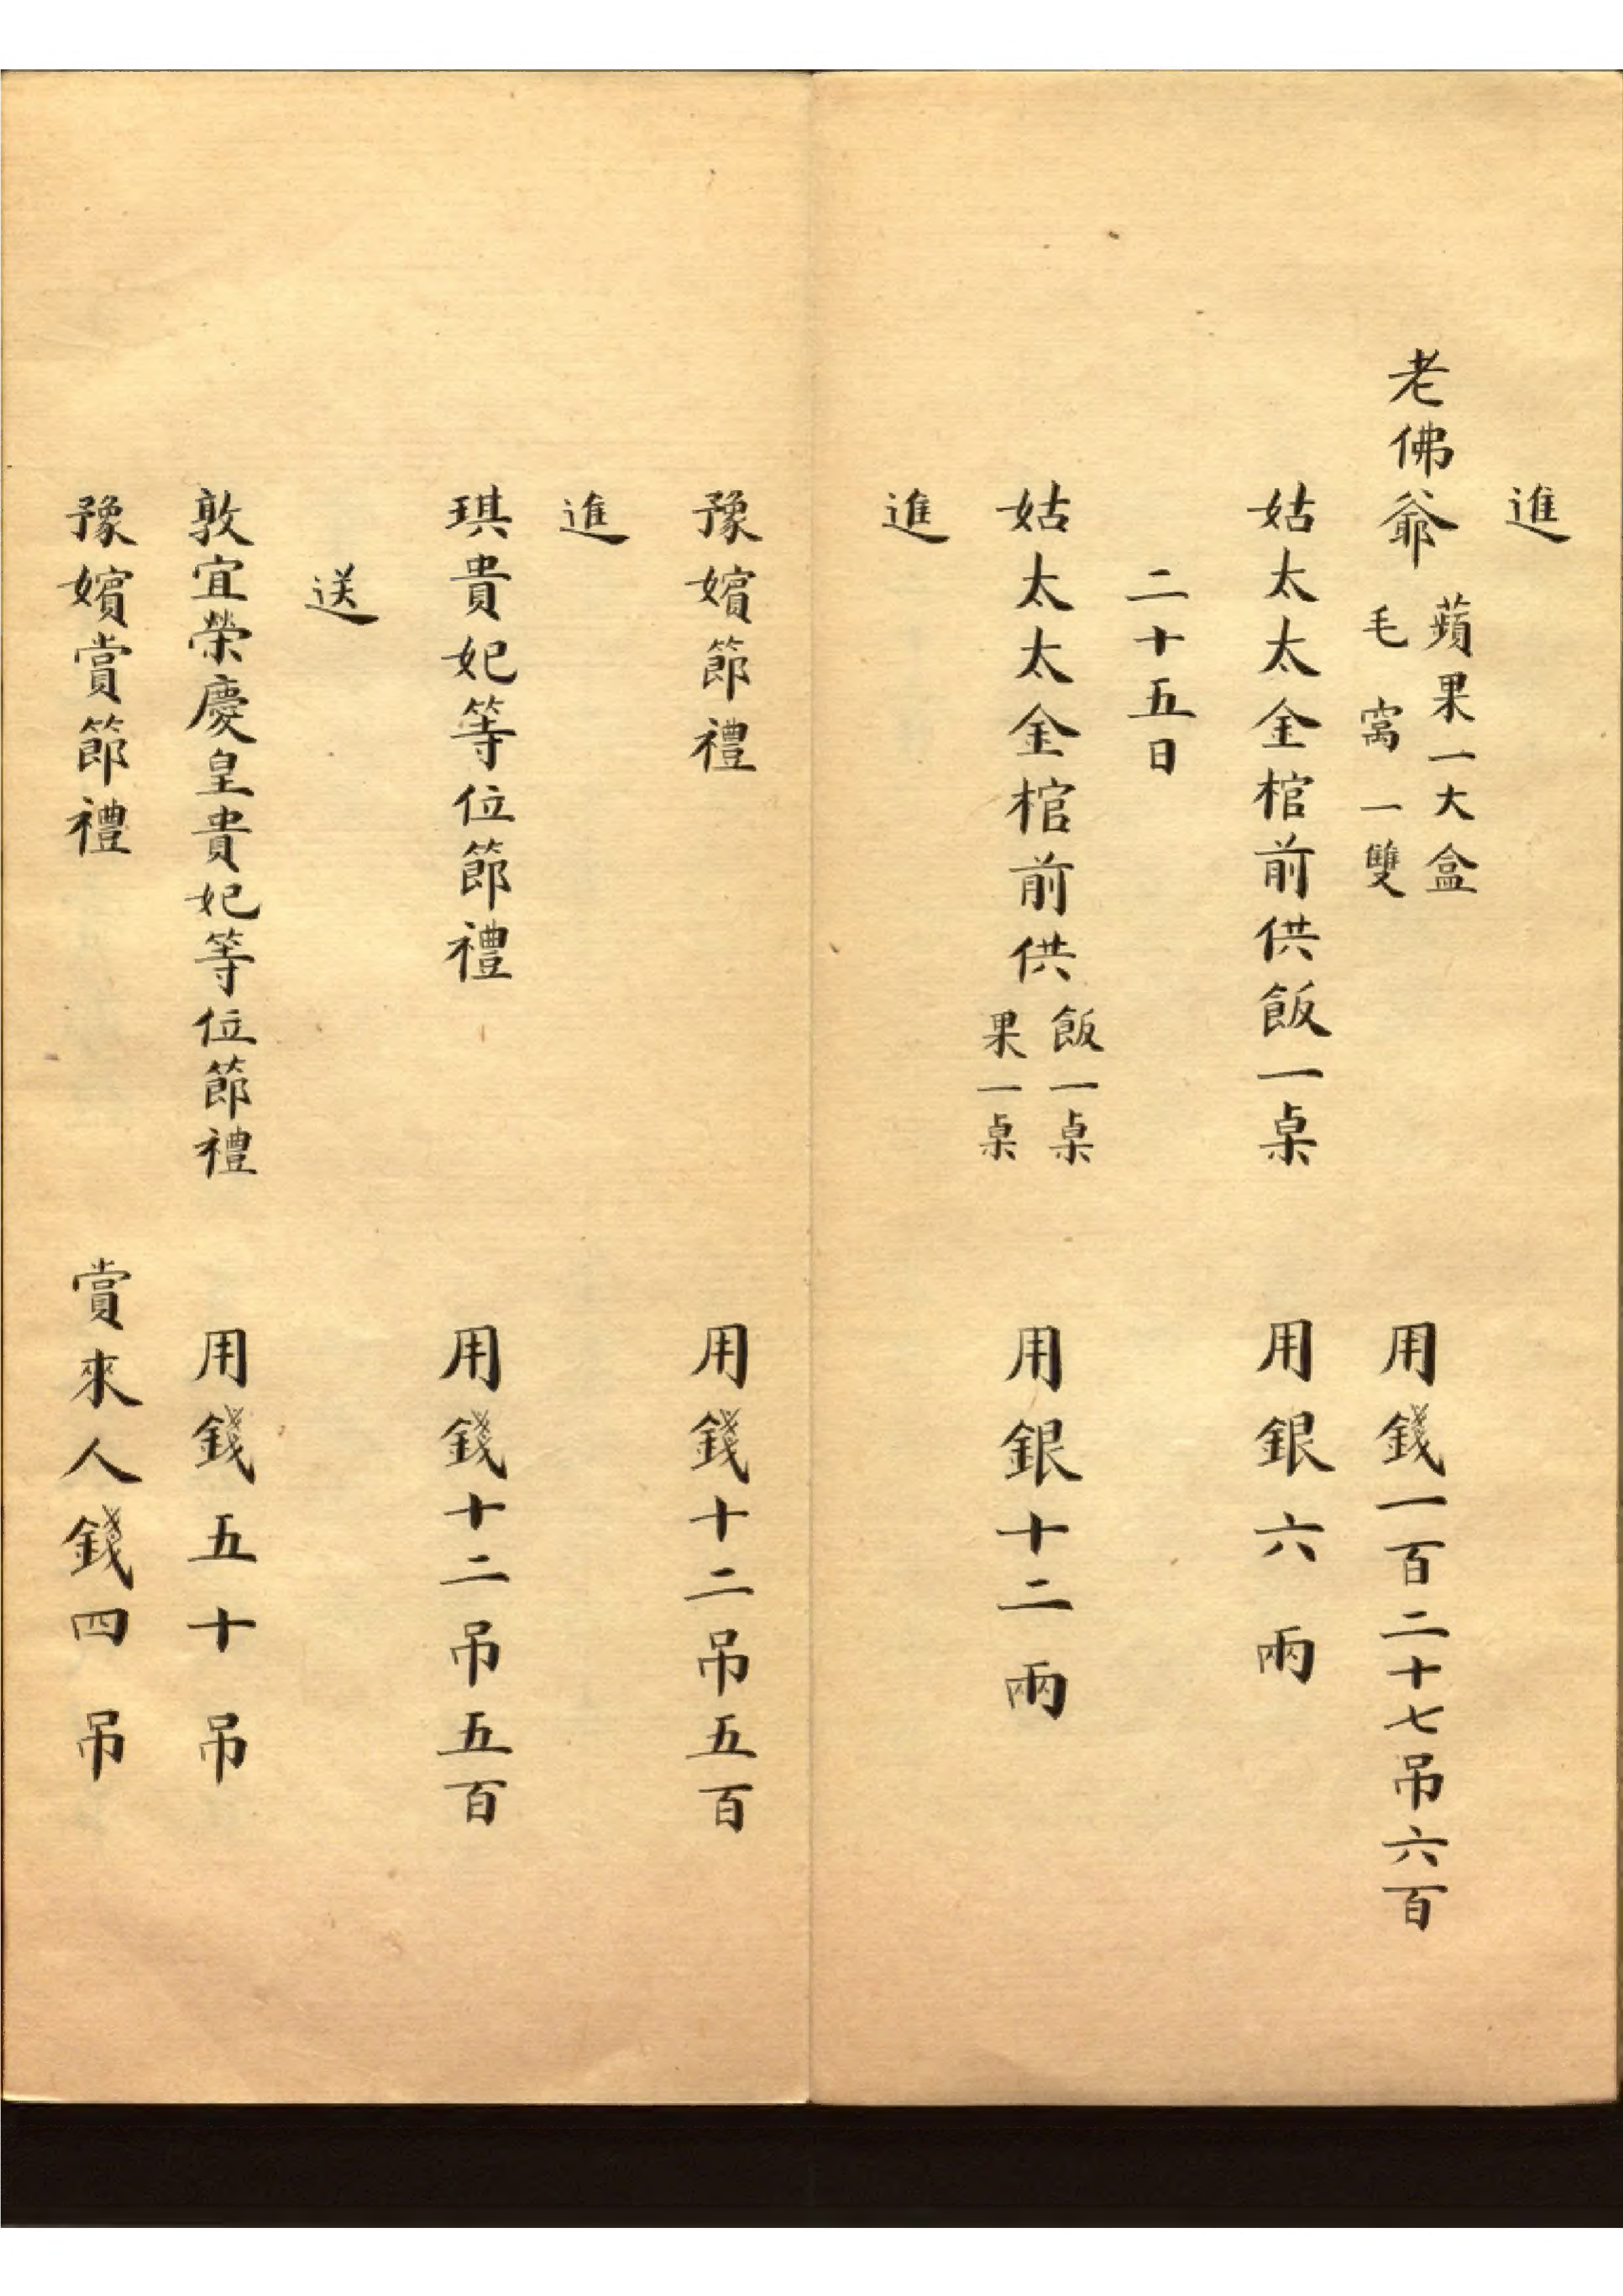 進
老佛爺 蘋果一大盒
毛窩一雙
用錢一百二十七吊六百
姑太太金棺前供飯一桌 用銀六兩
二十五日
姑太太金棺前供 飯一桌
果一桌
用銀十二兩
進
豫嬪節禮 用錢十二吊五百
進
琪貴妃等位節禮 用錢十二吊五百
送
敦宜榮慶皇貴妃等位節禮 用錢五十吊
豫嬪賞節禮 賞來人錢四吊